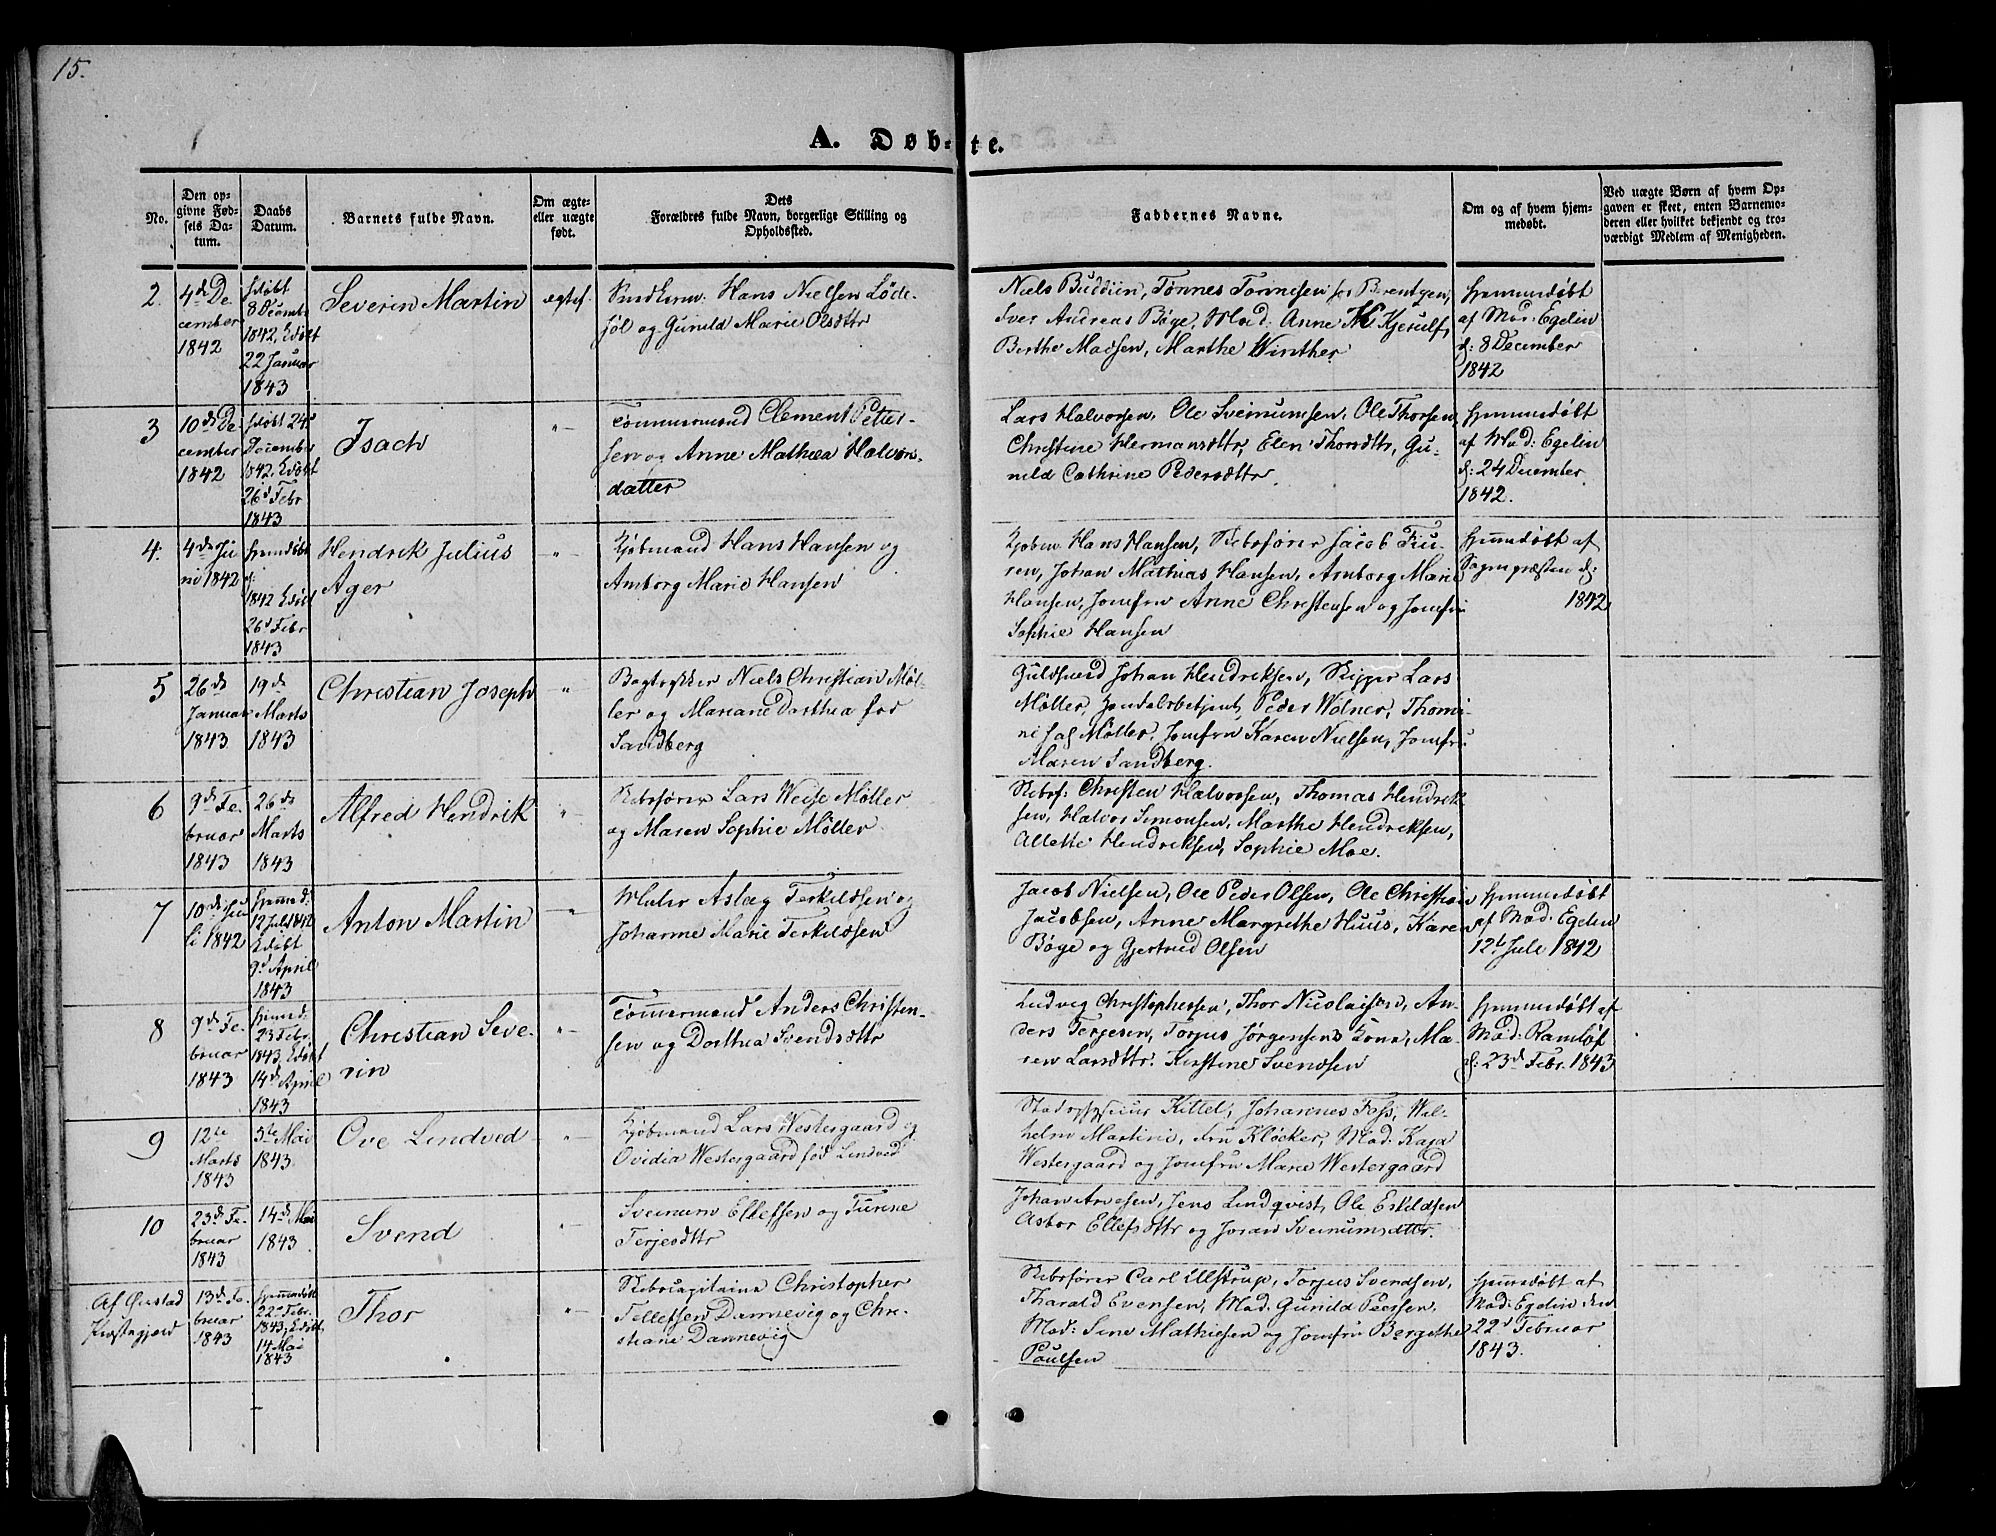 15.
A. Døb-te.
No.
Den op-
givne Fød-
sels Da-
tum.
Daabs
Datum.
Barnets fulde Navn.
Om ægte
eller uægte
født.
Dets
Forældres fulde Navn, borgerlige Stilling og
Opholdssted.
Faddernes Navne.
Om og af hvem hjem-
medøbt.
Ved uægte Børn af hvem Op-
gaven er skeet, enten Barnemo-
deren eller hvilket bekjendt og tro-
værdigt Medlem af Menigheden.
2.
4de De
cember
1842
8 Decembr
1842,
22 Januar
1843
Severin Martin
ægtef.
Hans Nielsen Løde-
sjöl og Gunild Marie Olsdttr
Niels Buddiin, Tønnes Tønnesen for Berentzen,
Iver Andreas Bøge, Mad: Anne M Kjerulf,
Berthe Madsen, Marthe Winther
Hjemmedøbt
af Mad: Egelin
d: 8 December
1842
3
10de De
cember
1842
24de
December
1842.
26d Febr
1843
Isach
"
Tømmermand Clement Petter-
sen og Anne Mathea Halvors-
datter
Lars Halvorsen, Ole Sveinumsen, Ole Thorsen,
Christine Hermansdttr, Elen Thorsdttr, Gu-
nild Cathrine Pedersdttr
Hjemmedøbt
af Mad: Egelin
d: 24 December
1842.
4.
4de Ju
ni 1842
hjemdøbt
d:
1842
26d Febr
1843
Hendrik Julius
Ager
"
Kjøbmand Hans Hansen og
Amborg Marie Hansen
Kjøbm. Hans Hansen, Skibsfører Jacob
Johan Mathias Hansen, Amborg Marie
Hansen, Jomfru Anne Christensen og Jomfru
Sophie Hansen
Hjemmedøbt af
Sognepræsten d:
1842
5
26de
Januar
1843
19de
Marts
1843
Christian Joseph
"
Bogtrykker Niels Christian Møl-
ler og Mariane Dorthea fød
Sandberg
Guldsmed Johan Hendriksen, Skipper Lars
Møller, Handelsbetjent Peder Wolner, Thomi-
Møller, Jomfru Karen Nielsen, Jomfru
Maren Sandberg.
6
9de Fe-
bruar
1843
26de
Marts
1843
Alfred Hendrik
"
Skibsfører Lars Weise Møller
og Maren Sophie Møller
Skibsf: Christen Halvorsen, Thomas Hendrik
sen, Halvor Simonsen, Marthe Hendriksen,
Allette Hendriksen, Sophie Moe.
7
10de Ju
li 1842
hjemmed:
12 Juli 1842
9d April
1843
Anton Martin
"
Asleg Terkildsen og
Johanne Marie Terkildsen
Jacob Nielsen, Ole Peder Olsen, Ole Christian
Jacobsen, Anne Margrethe Huus, Karen
Bøge og Gjertrud Olsen
Hjemmedøbt
af Mad: Egelin
12te Juli 1842
8
9de Fe-
bruar
1843
hjemmed:
23 Febr.
1843,
14d April
1843
Christian Seve-
rin
"
Tømmermand Anders Christen-
sen og Dorthea Svendsdttr
Ludvig Christophersen, Thor Nicolaisen, An-
ders Terjesen, Torjus Jørgensens Kone, Ma-
ren Larsdttr. Kirstine Svendsen
Hjemmedøbt af
Mad: Ramløf
d: 23d Febr. 1843
9
12te
Marts
1843
5te Mai
1843
Ove Lindved
"
Kjøbmand Lars Westergaard og
Ovidia Westergaard fød Lindved
Stadsphysicus Kittel, Johannes Foss, Wil-
helm Martini, Fru Kløcker, Mad. Kaja
Westergaard og Jomfru Marie Westergaard
10
23de Fe-
bruar
1843
14de Mai
1843
Svend
"
Sveinum Ellefsen og Turine
Terjesdttr
Johan Arnesen, Jens Lindqvist, Ole Eskildsen
Asbor Ellefsdttr og Joran Sveinumsdatter.
Af Øiestad
Præstegjeld
13de Fe-
bruar
1843
hjemmedøbt
22de Febr.
1843,
14 Mai
1843
Thor
"
Skibscapitaine Christopher
Tellefsen Dannevig og Chri-
stiane Dannevig
Skibsfører Carl Ulstrup, Torjus Svendsen,
Tharald Evensen, Mad. Gunild Peersen,
Mad: Sine Mathiesen og Jomfru Bergethe
Paulsen
Hjemmedøbt af
Mad: Egelin den
22d Februar
1843.